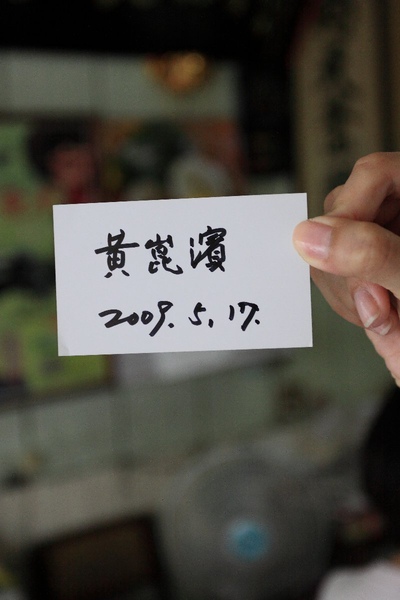 黃崑濱
2009.5.17.